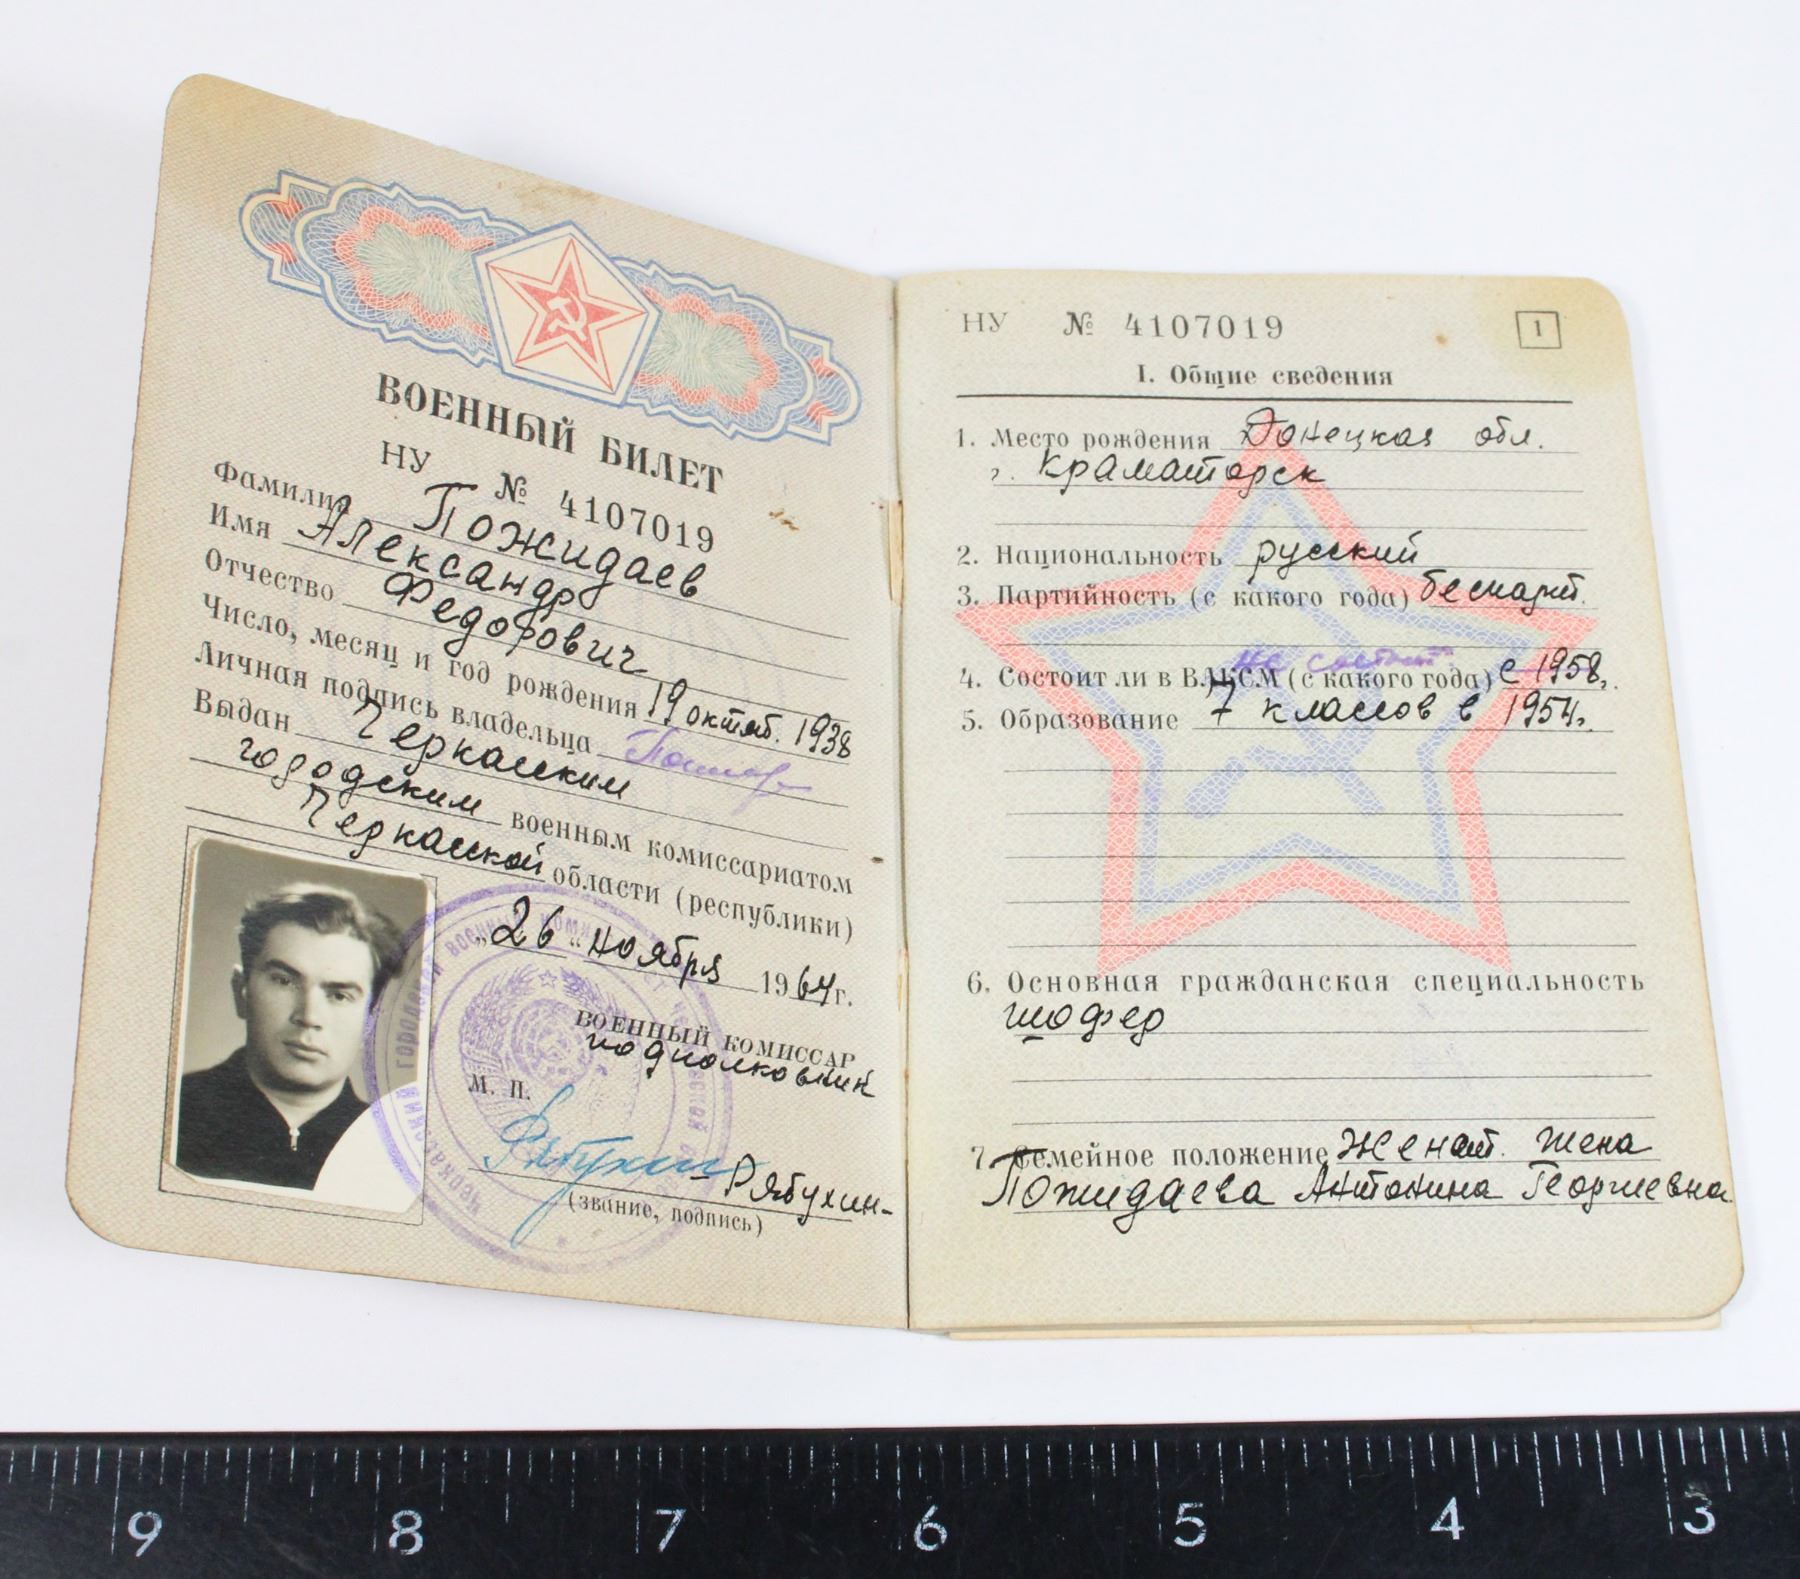 ВОЕННЫЙ БИЛЕТ
НУ № 4107019
Фамилия Пожидаев
Имя Александр
Отчество Федорович
Число, месяц и год рождения 19 октяб. 1938
Личная подпись владельца
Выдан Черкасским
городским военным комиссариатом
Черкасской области (республики)
„26“ ноября 1964г.
ВОЕННЫЙ КОМИССАР
подполковник
М. П.
Рябухин
(звание, подпись)
НУ № 4107019
1
I. Общие сведения
1. Место рождения Донецкая обл.
г. Краматорск
2. Национальность русский
3. Партийность (с какого года) беспарт.
не состоит
4. Состоит ли в ВЛКСМ (с какого года) с 1958г.
5. Образование 7 классов в 1954г.
6. Основная гражданская специальность
шофер
7. Семейное положение Женат. Жена
Пожидаева Антонина Георгиевна
9 8 7 6 5 4 3